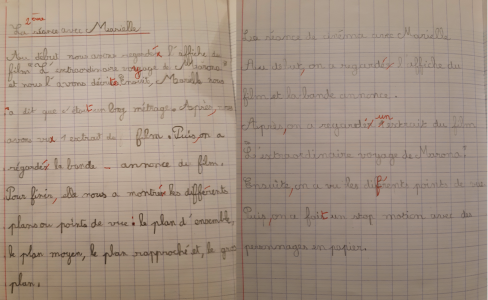 2ème
La séance avec Marielle
Au début nous avons regardé l'affiche du
film "L'extraordinaire voyage de Marona"
et nous l'avons décrite. Ensuite, Marielle nous
a dit que c'était un long métrage. Après, nous
avons vu 1 extrait du film. Puis, on a
regardé la bande-annonce du film.
Pour finir, elle nous a montré les différents
plans ou points de vue : le plan d'ensemble,
le plan moyen, le plan rapproché et, le gros
plan.
La séance de cinéma avec Marielle
Au début, on a regardé l'affiche du
film et la bande annonce.
Après, on a regardé un extrait du film
"L'extraordinaire voyage de Marona"
Ensuite, on a vu les différents points de vue
Puis, on a fait un stop motion avec des
personnages en papier.